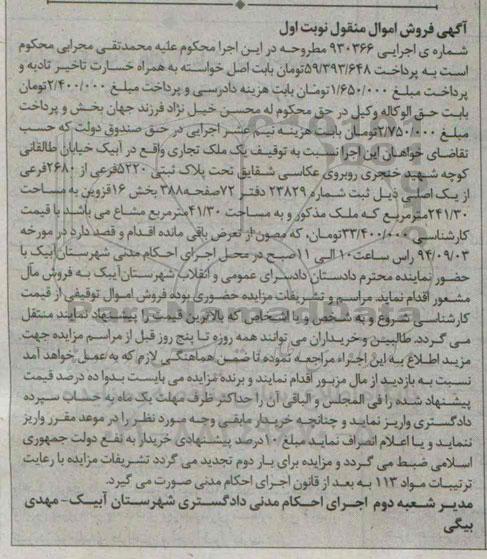 آگهی فروش اموال منقول نوبت اول
شماره ی اجرایی ۹۳۰۳۶۶ مطروحه در این اجرا محکوم علیه محمدتقی محرابی محکوم
است به پرداخت ۵۹/۳۹۳/۶۴۸تومان بابت اصل خواسته به همراه خسارت تاخیر تادیه و
پرداخت مبلغ ۱/۶۵۰/۰۰۰ تومان بابت هزینه دادرسی و پرداخت مبلغ ۲/۴۰۰/۰۰۰تومان
بابت حق الوکاله وکیل در حق محکوم له محسن خیل نژاد فرزند جهان بخش و پرداخت
مبلغ ۲/۷۵۰/۰۰۰تومان بابت هزینه نیم عشر اجرایی در حق صندوق دولت که حسب
تقاضای خواهان این اجرا نسبت به توقیف یک ملک تجاری واقع در آبیک خیابان طالقانی
کوچه شهید خنجری روبروی عکاسی شقایق تحت پلاک ثبتی ۵۲۲۰فرعی از ۲۶۸۰فرعی
از یک اصلی ذیل ثبت شماره ۲۳۸۲۹ دفتر ۷۲صفحه۳۸۸ بخش ۱۶قزوین به مساحت
۲۴۱/۳۰مترمربع که ملک مذکور و به مساحت ۴۱/۳۰مترمربع مشاع می باشد با قیمت
کارشناسی ۳۳/۴۰۰/۰۰۰تومان، که مصون از تعرض باقی مانده اقدام و قصد دارد در مورخه
۹۴/۰۹/۰۳ راس ساعت۱۰ الی ۱۱صبح در محل اجرای احکام مدنی شهرستان آبیک با
حضور نماینده محترم دادستان دادسرای عمومی و انقلاب شهرستان آبیک به فروش مال
مشعور اقدام نماید. مراسم و تشریفات مزایده حضوری بوده فروش اموال توقیفی از قیمت
کارشناسی شروع و به شخص و یا اشخاص که بالاترین قیمت را پیشنهاد نمایند منتقل
می گردد. طالبین وخریداران می توانند همه روزه تا پنج روز قبل از مراسم مزایده جهت
مزید اطلاع به این اجراء مراجعه نموده تا ضمن هماهنگی لازم که به عمل خواهد آمد
نسبت به بازدید از مال مزبور اقدام نمایند و برنده مزایده می بایست بدوا ده درصد قیمت
پیشنهاد شده را فی المجلس و الباقی آن را حداکثر ظرف مهلت یک ماه به حساب سپرده
دادگستری واریز نماید و چنانچه خریدار مابقی وجه مورد نظر را در موعد مقرر واریز
ننماید و یا اعلام انصراف نماید مبلغ ۱۰درصد پیشنهادی خریدار به نفع دولت جمهوری
اسلامی ضبط می گردد و مزایده برای بار دوم تجدید می گردد تشریفات مزایده با رعایت
ترتیبات مواد ۱۱۳ به بعد از قانون اجرای احکام مدنی صورت می گیرد.
مدیر شعبه دوم اجرای احکام مدنی دادگستری شهرستان آبیک- مهدی
بیگی